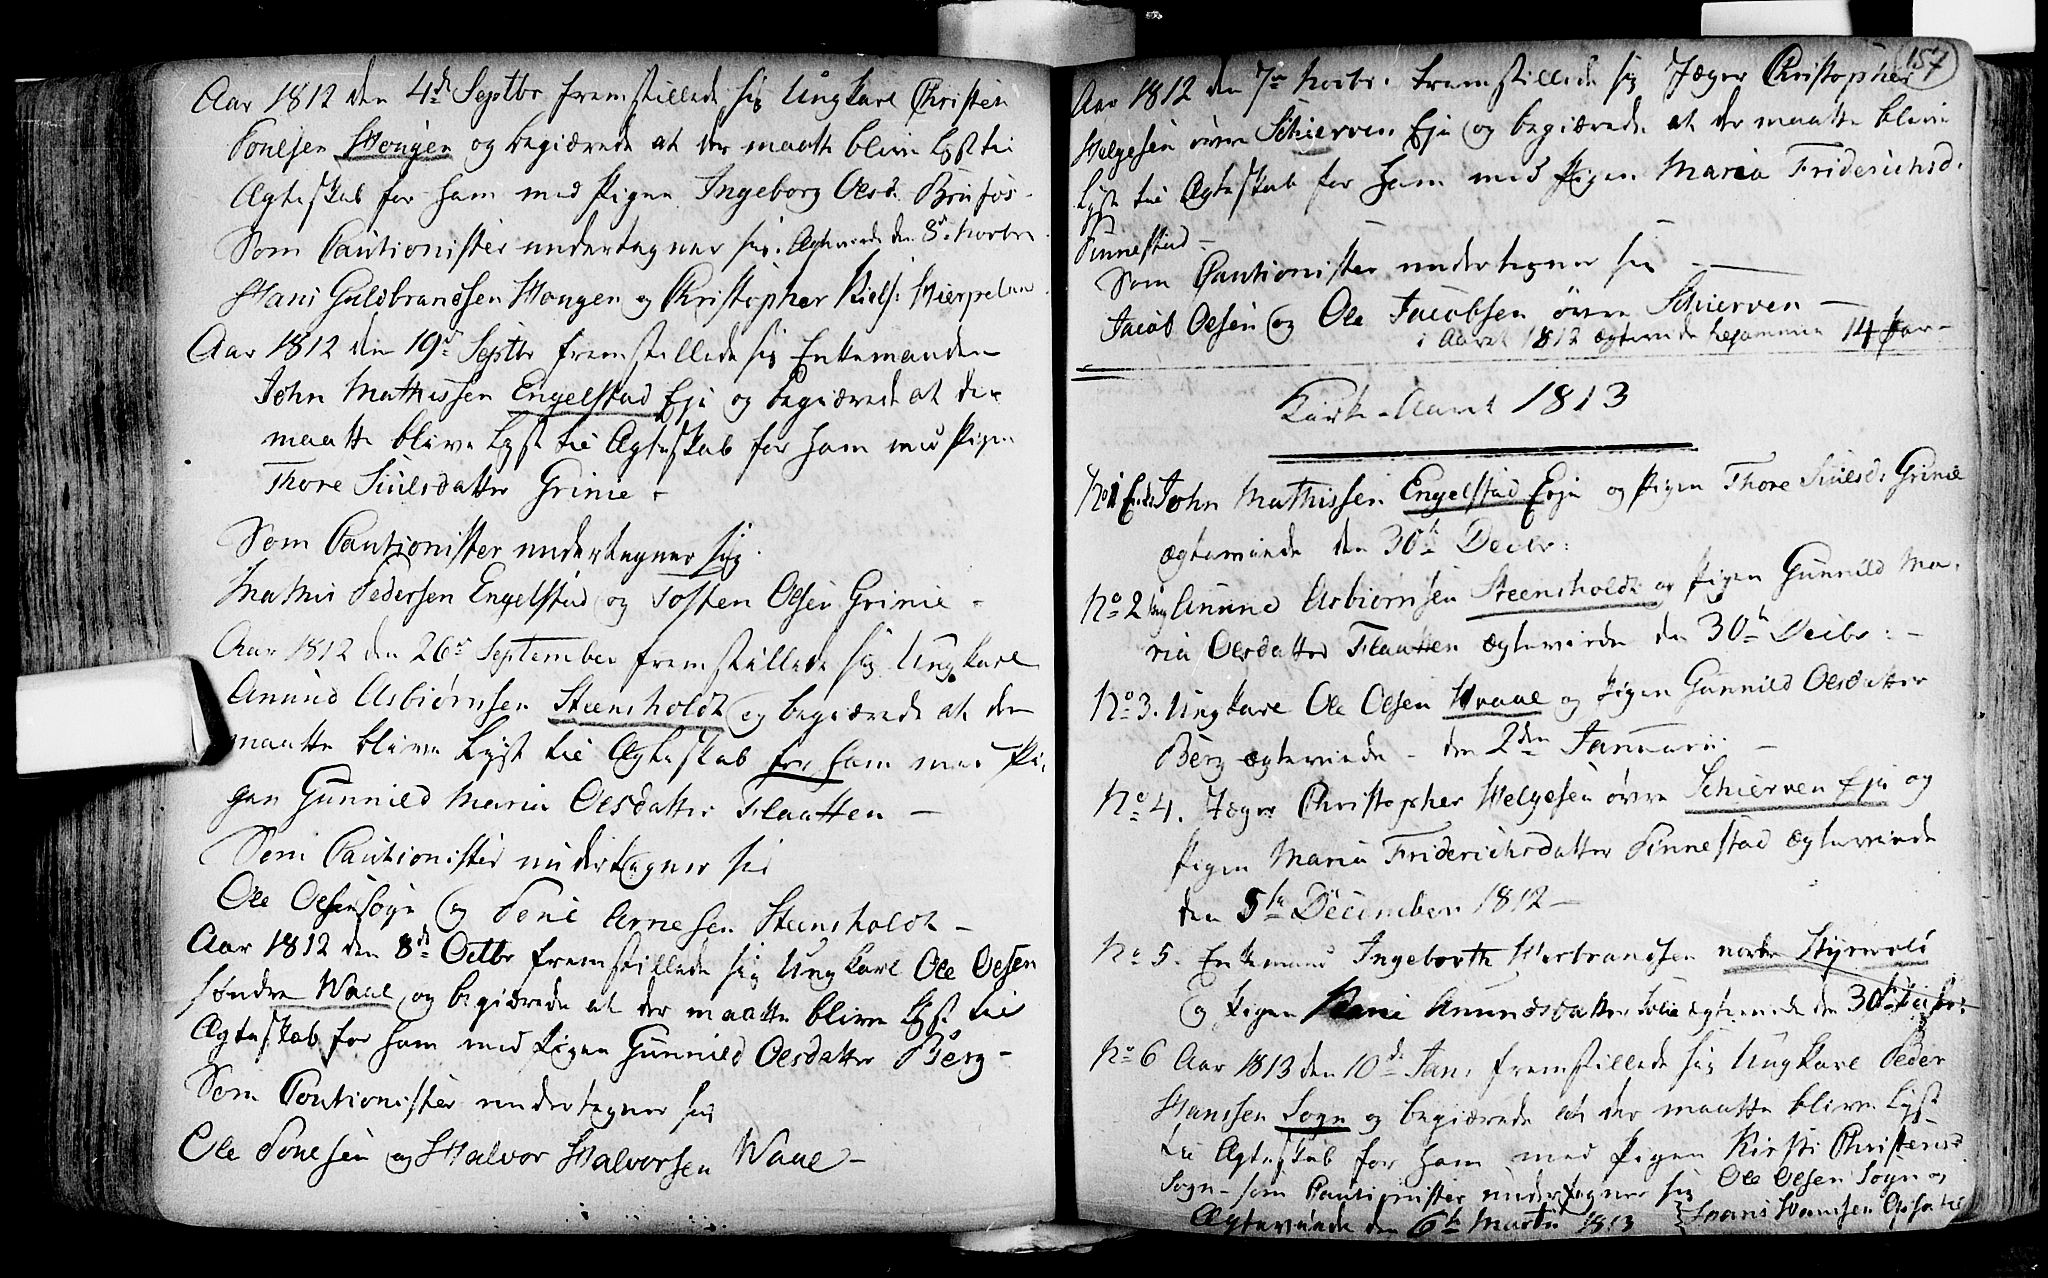 Aar 1812 den 4de Septbr fremstillede sig Ungkarl Christen
Tonesen Hougen og begiærede at der maatte blive lyst til
Ægteskab for ham med Pigen Ingeborg Olsd. Brufos-
Som Cautionister undertegner sig. Ægteviede den 8de Novbr.
Hans Guldbrandsen Hougen og Christopher Niels: Hierpelun
Aar 1812 den 19de Septbr fremstillede sig Enkemanden
John Mathissen Engelstad Eje og begiærede at der
maatte blive lyst til Ægteskab for ham med Pigen
Thore Siulsdatter Grime -
Som Cautionister undertegner sig.
Mathis Pedersen Engelstad og Tosten Olsen Grime -
Aar 1812 den 26de September fremstillede sig Ungkarl
Anund Asbiørnsen Steensholdt og begiærede at der
maatte blive Lyst til Ægteskab for ham med Pi-
gen Gunnild Maria Olsdatter Flaatten -
Som Cautionister undertegner sig
Ole Olsen Sogn og Toni Arnesen Steensholdt -
Aar 1812 den 8de Octbr fremstillede sig Ungkarl Ole Olsen
søndre Waal og begiærede at der maatte blive lyst til
Ægteskab for ham med Pigen Gunnild Olsdatter Berg -
Som Cautionister undertegner sig
Ole Tonesen og Halvor Halvorsen Waal -
157
Aar 1812 den 7de Novbr. fremstillede sig Jæger Christopher
Helgesen øvre Schierven Eje og begiærede at der maatte blive
Lyst til Ægteskab for ham med Pigen Maria Friderichsd.
Tinnestad -
Som Cautionister undertegner sig -
Jacob Olsen og Ole Jacobsen øvre Schierven -
i Aaret 1812 ægteviede tesammen 14 par -
Kirke-Aaret 1813
No 1 Enk: John Mathissen Engelstad Eje og Pigen Thore Siulsd: Grime
ægteviede den 30te Decbr:
No 2 ung Anund Asbiørnsen Steensholdt og Pigen Gunnild Ma-
ria Olsdatter Flaatten ægteviede den 30te Decbr: -
No 3. Ungkarl Ole Olsen Waal og Pigen Gunnild Olsdatter
Berg ægteviede - den 2den Januarii -
No 4. Jæger Christopher Helgesen øvre Schierven Eje og
Pigen Maria Friderichsdatter Tinnestad ægteviede
den 5te December 1812 -
No 5. Enkemand Ingeborth Herbrandsen nordre Styrvold
og Pigen Anundsdatter ægteviede den 30te
No 6 Aar 1813 den 10de Jan: fremstillede sig Ungkarl Peder
Hanssen Sogn og begiærede at der maatte blive lyst
til Ægteskab for ham med Pigen Kirsti Christensd
Sogn - som Cautionister undertegner sig Ole Olsen Sogn og
Ægteviede den 6te Martii 1813 Hans Hansen